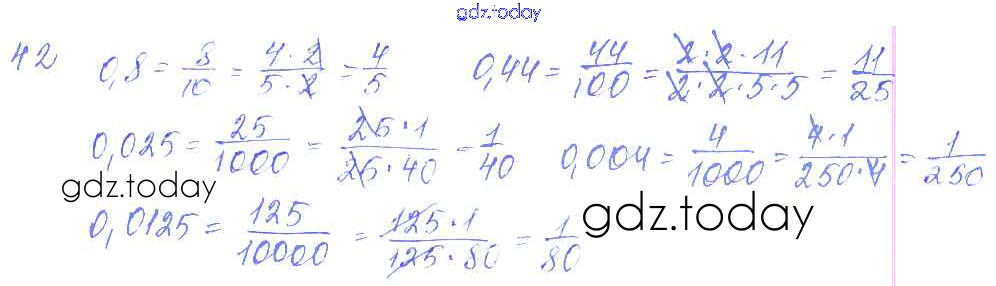 gdz.today
42 0,8 = 8/10 = 4·2/5·2 = 4/5 0,44 = 44/100 = 2·2·11/2·2·5·5 = 11/25
0,025 = 25/1000 = 25·1/25·40 = 1/40 0,004 = 4/1000 = 4·1/250·4 = 1/250
gdz.today
0,0125 = 125/10000 = 125·1/125·80 = 1/80
gdz.today